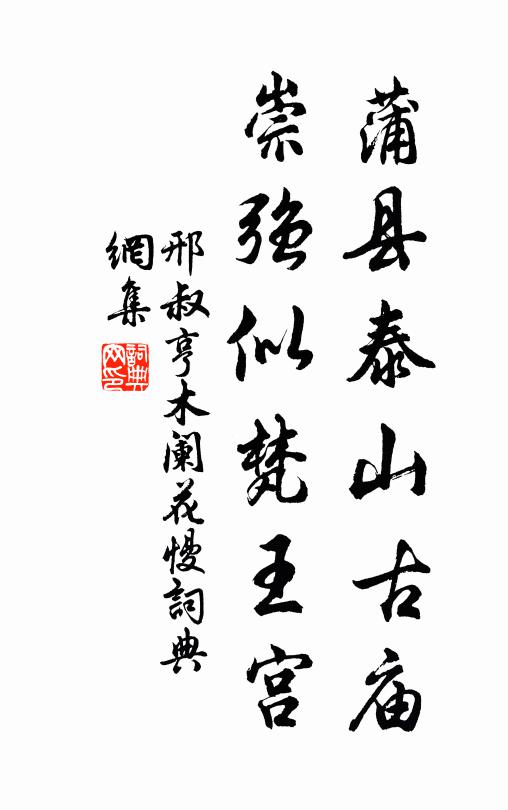 蒲县泰山古庙
崇强似梵王宫
邢叔亨木阑花慢詞典
網集
詞典
网印